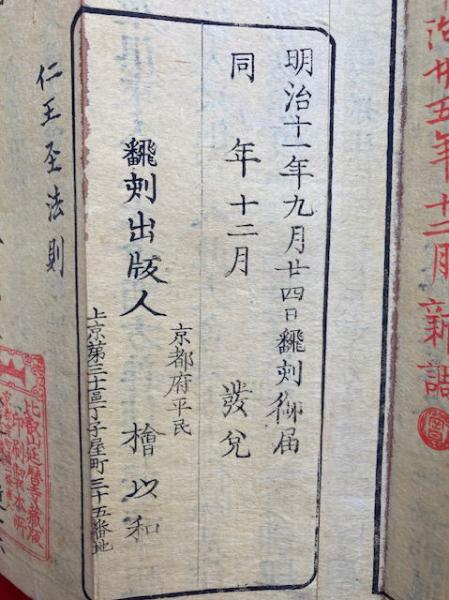 治廿五年十二月新調
明治十一年九月廿四日飜刻御届
同年十二月發兌
京都府平民
飜刻出版人 檜山和
上京第三十區丁子屋町三十五番地
仁王圣法則
比叡山延暦寺蔵版
印刷製本所